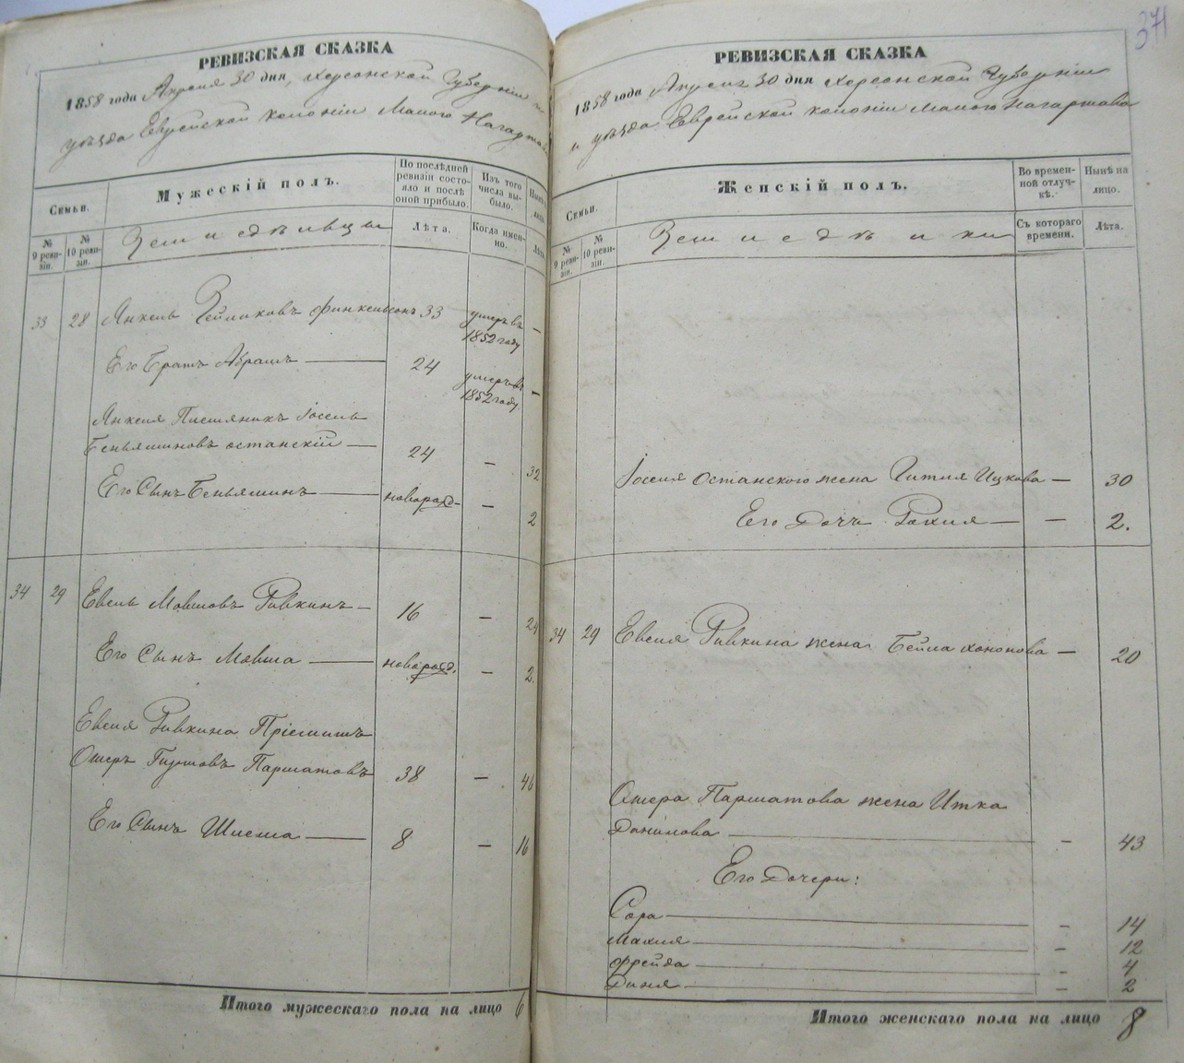 РЕВИЗСКАЯ СКАЗКА
1858 года Апреля 30 дня, Херсонской Губерніи и
уѣзда Еврейской колоніи Малого Нагартова
Семьи.
Мужескій полъ.
По послѣдней ревизіи состояло и послѣ оной прибыло.
Изъ того числа выбыло.
№ 9 ревизіи.
№ 10 ревизіи.
Земледѣльцы
Лѣта.
Когда именно.
33 28 Янкель Зейликовъ Финкельсонъ 33 умеръ въ 1852 году —
Его Братъ Абрамъ — 24 умеръ въ 1852 году —
Янкеля Племяникъ Іосель
Беньяминовъ Останскій — 24 — 32
Его Сынъ Беньяминъ — новорожд — 2
34 29 Евель Мовшовъ Ривкинъ — 16 — 24
Его Сынъ Мовша — новорожд. — 2
Евеля Ривкина Пріемышъ
Ошеръ Гиршовъ Паршатовъ 38 — 46
Его Сынъ Шлема — 8 — 16
Итого мужескаго пола на лицо 6
371
РЕВИЗСКАЯ СКАЗКА
1858 года Апреля 30 дня Херсонской Губерніи
и уѣзда Еврейской колоніи Малого Нагартова
Семьи.
Женскій полъ.
Во временной отлучкѣ.
Нынѣ на лицо.
№ 9 ревизіи.
№ 10 ревизіи.
Съ котораго времени.
Лѣта.
Іоселя Останского жена Гитля Ицкова — 30
Его Дочь Рохля — — 2.
34 29 Евеля Ривкина жена Бейла Хононова — 20
Ошера Паршатова жена Итка
Данилова — — 43
Его Дочери:
Сора — — 14
Махля — — 12
Фрейда — — 4
— — 2
Итого женскаго пола на лицо 8